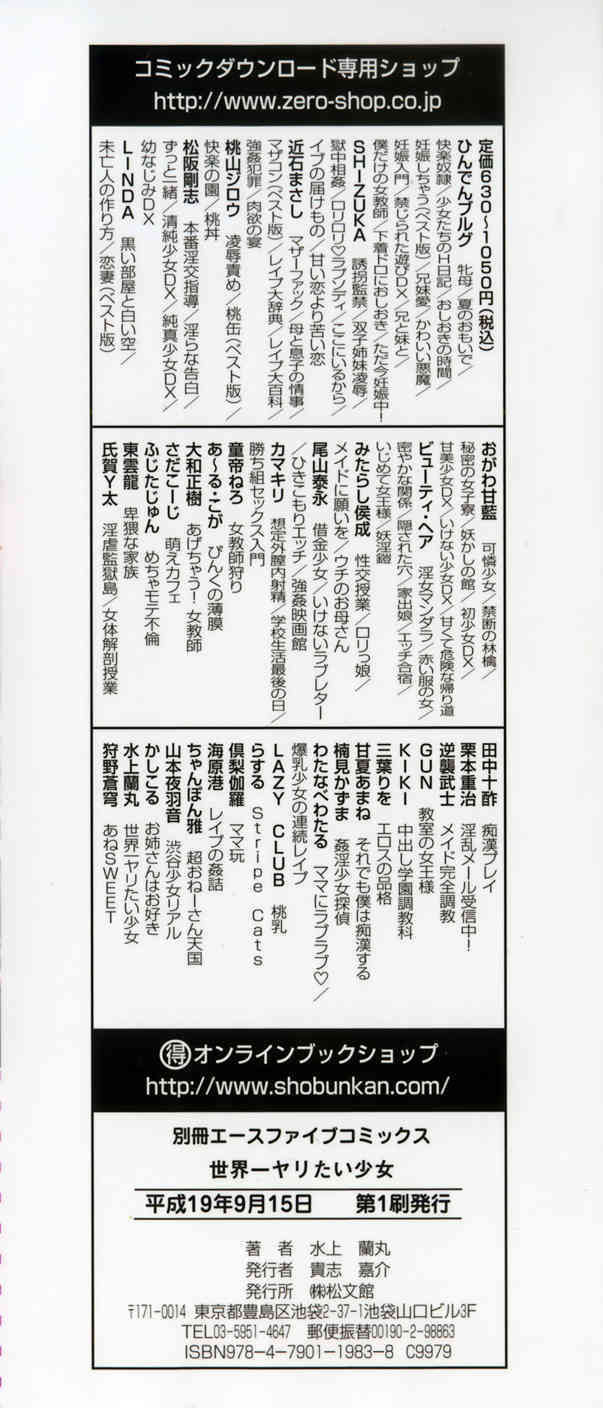 コミックダウンロード専用ショップ
http://www.zero-shop.co.jp
定価630〜1050円（税込）
ひんでんブルグ 牝母／夏のおもいで／
快楽奴隷／少女たちのH日記 おしおきの時間／
妊娠しちゃう（ベスト版）／兄妹愛／かわいい悪魔／
妊娠入門／禁じられた遊びDX／兄と妹と／
僕だけの女教師／下着ドロにおしおき／ただ今妊娠中！
SHIZUKA 誘拐監禁／双子姉妹凌辱／
獄中相姦／ロリロリ♡ラプソディ／ここにいるから／
イブの届けもの／甘い恋より苦い恋
近石まさし マザーファック／母と息子の情事／
マザコン（ベスト版）／レイプ大辞典／レイプ大百科／
強姦犯罪／肉欲の宴
桃山ジロウ 凌辱責め／桃缶（ベスト版）／
快楽の園／桃丼
松阪剛志 本番淫交指導／淫らな告白／
ずっと一緒／清純少女DX／純真少女DX／
幼なじみDX
LINDA 黒い部屋と白い空／
未亡人の作り方／恋妻（ベスト版）
おがわ甘藍 可憐少女／禁断の林檎／
秘密の女子寮／妖かしの館／初少女DX／
甘美少女DX／いけない少女DX／甘くて危険な帰り道
ビューティ・ヘア 淫女マンダラ／赤い服の女／
密やかな関係／隠された穴／家出娘／エッチ合宿／
いじめて女王様／妖淫鎧
みたらし侯成 性交授業／ロリっ娘／
メイドに願いを／ウチのお母さん
尾山泰永 借金少女／いけないラブレター
／ひきこもりエッチ／強姦映画館
カマキリ 想定外膣内射精／学校生活最後の日／
勝ち組セックス入門
童帝ねろ 女教師狩り
あ〜る・こが ぴんくの薄膜
大和正樹 あげちゃう！女教師
さだこーじ 萌えカフェ
ふじたじゅん めちゃモテ不倫
東雲龍 卑猥な家族
氏賀Y太 淫虐監獄島／女体解剖授業
田中十酢 痴漢プレイ
栗本重治 淫乱メール受信中！
逆襲武士 メイド完全調教
GUN 教室の女王様
KIKI 中出し学園調教科
三葉りを エロスの品格
甘夏あまね それでも僕は痴漢する
楠見かずま 姦淫少女探偵
わたなべわたる ママにラブラブ♡／
爆乳少女の連続レイプ
LAZY CLUB 桃乳
らする Stripe Cats
倶梨伽羅 ママ玩
海原港 レイプの姦詰
ちゃんぽん雅 超おねーさん天国
山本夜羽音 渋谷少女リアル
かしこる お姉さんはお好き
水上蘭丸 世界一ヤリたい少女
狩野蒼穹 あねSWEET
㊝オンラインブックショップ
http://www.shobunkan.com/
別冊エースファイブコミックス
世界一ヤリたい少女
平成19年9月15日 第1刷発行
著 者 水上 蘭丸
発行者 貴志 嘉介
発行所 ㈱松文館
〒171-0014 東京都豊島区池袋2-37-1池袋山口ビル3F
TEL03-5951-4647 郵便振替00190-2-98863
ISBN978-4-7901-1983-8 C9979